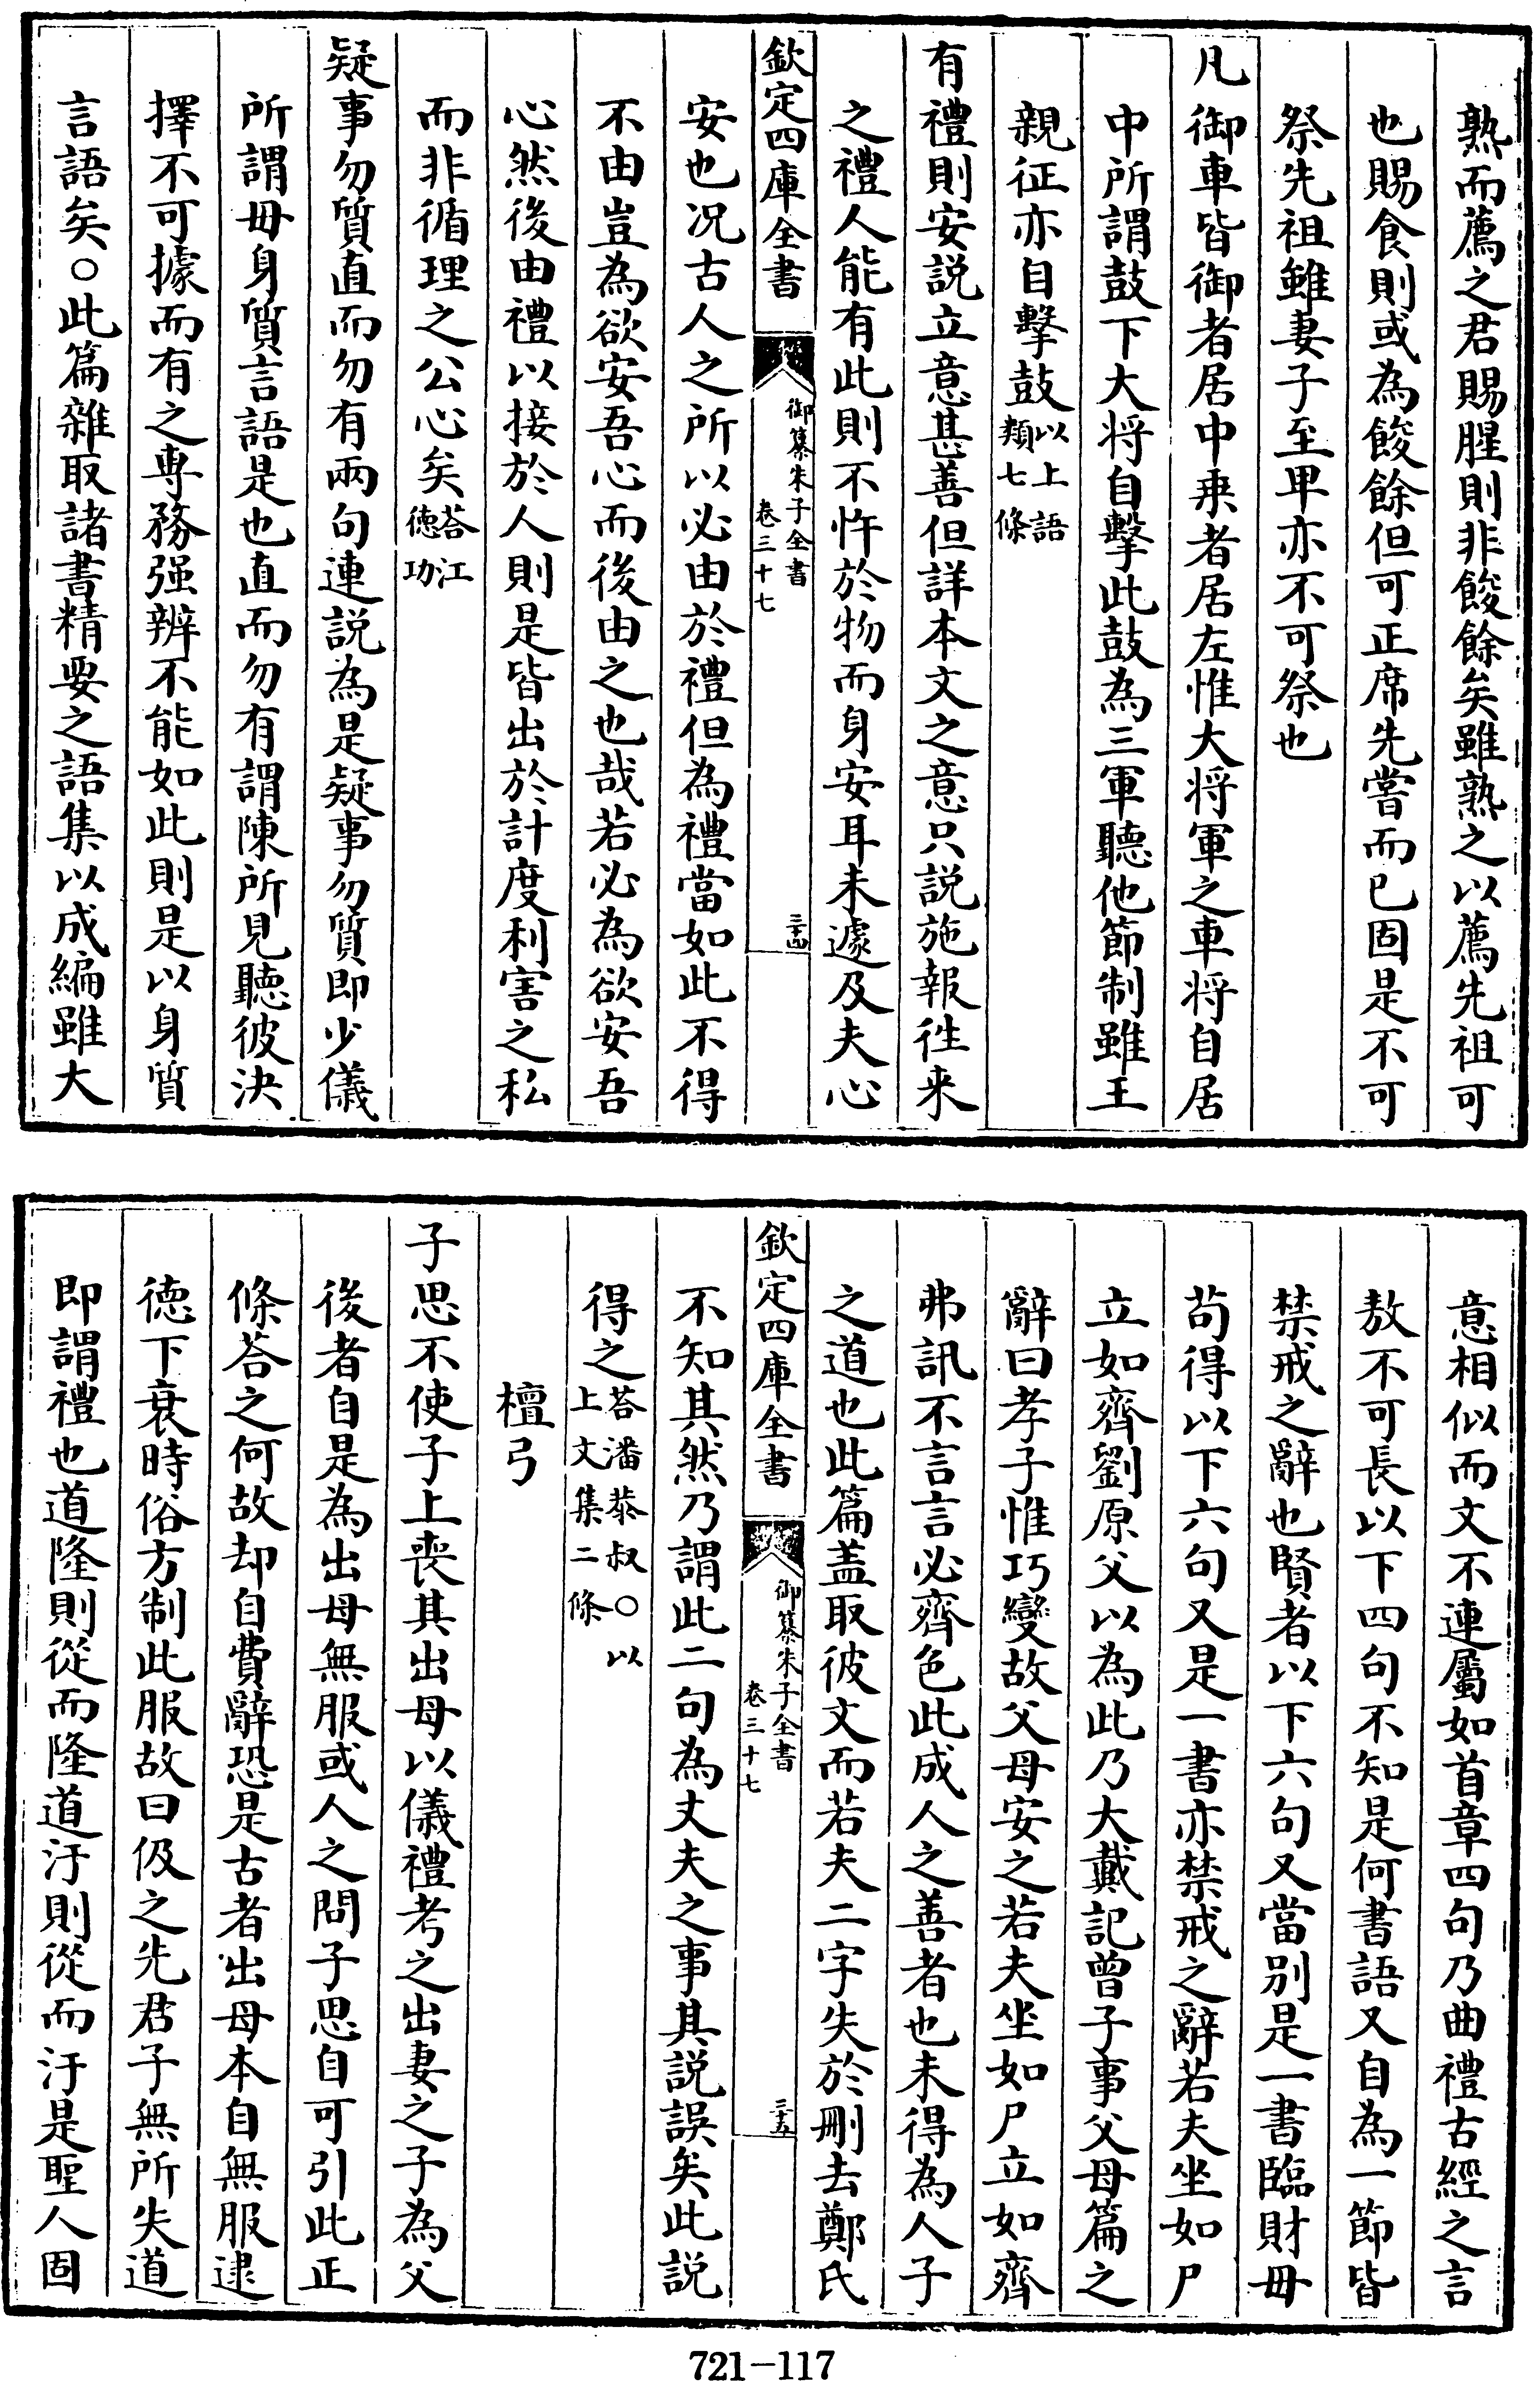 熟而薦之君賜腥則非餕餘矣雖熟之以薦先祖可
也賜食則或為餕餘但可正席先嘗而已固是不可
祭先祖雖妻子至卑亦不可祭也
凡御車皆御者居中乗者居左惟大将軍之車将自居
中所謂鼓下大将自擊此鼓為三軍聽他節制雖王
親征亦自擊鼓以上語類七條
有禮則安説立意甚善但詳本文之意只説施報徃来
之禮人能有此則不忤於物而身安耳未遽及夫心
欽定四庫全書 御纂朱子全書 卷三十七 三十四
安也况古人之所以必由於禮但為禮當如此不得
不由豈為欲安吾心而後由之也哉若必為欲安吾
心然後由禮以接於人則是皆出於計度利害之私
而非循理之公心矣荅江徳功
疑事勿質直而勿有兩句連説為是疑事勿質即少儀
所謂毋身質言語是也直而勿有謂陳所見聽彼決
擇不可據而有之専務强辨不能如此則是以身質
言語矣○此篇雜取諸書精要之語集以成編雖大
意相似而文不連屬如首章四句乃曲禮古經之言
敖不可長以下四句不知是何書語又自為一節皆
禁戒之辭也賢者以下六句又當别是一書臨財毋
苟得以下六句又是一書亦禁戒之辭若夫坐如尸
立如齊劉原父以為此乃大戴記曾子事父母篇之
辭曰孝子惟巧變故父母安之若夫坐如尸立如齊
弗訊不言言必齊色此成人之善者也未得為人子
之道也此篇盖取彼文而若夫二字失於刪去鄭氏
欽定四庫全書 御纂朱子全書 卷三十七 三十五
不知其然乃謂此二句為丈夫之事其説誤矣此説
得之荅潘恭叔○以上文集二條
檀弓
子思不使子上喪其出母以儀禮考之出妻之子為父
後者自是為出母無服或人之問子思自可引此正
條荅之何故却自費辭恐是古者出母本自無服逮
徳下衰時俗方制此服故曰伋之先君子無所失道
即謂禮也道隆則從而隆道汙則從而汙是聖人固
721-117